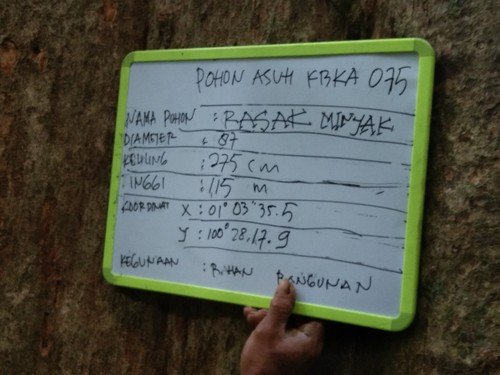 POHON ASUH KBKA 075
NAMA POHON : RASAK MINYAK
DIAMETER : 87
KELILING : 275 cm
TINGGI : 115 m
KOORDINAT X : 01° 03" 35.5
Y : 100° 28, 17.9
KEGUNAAN : BAHAN BANGUNAN